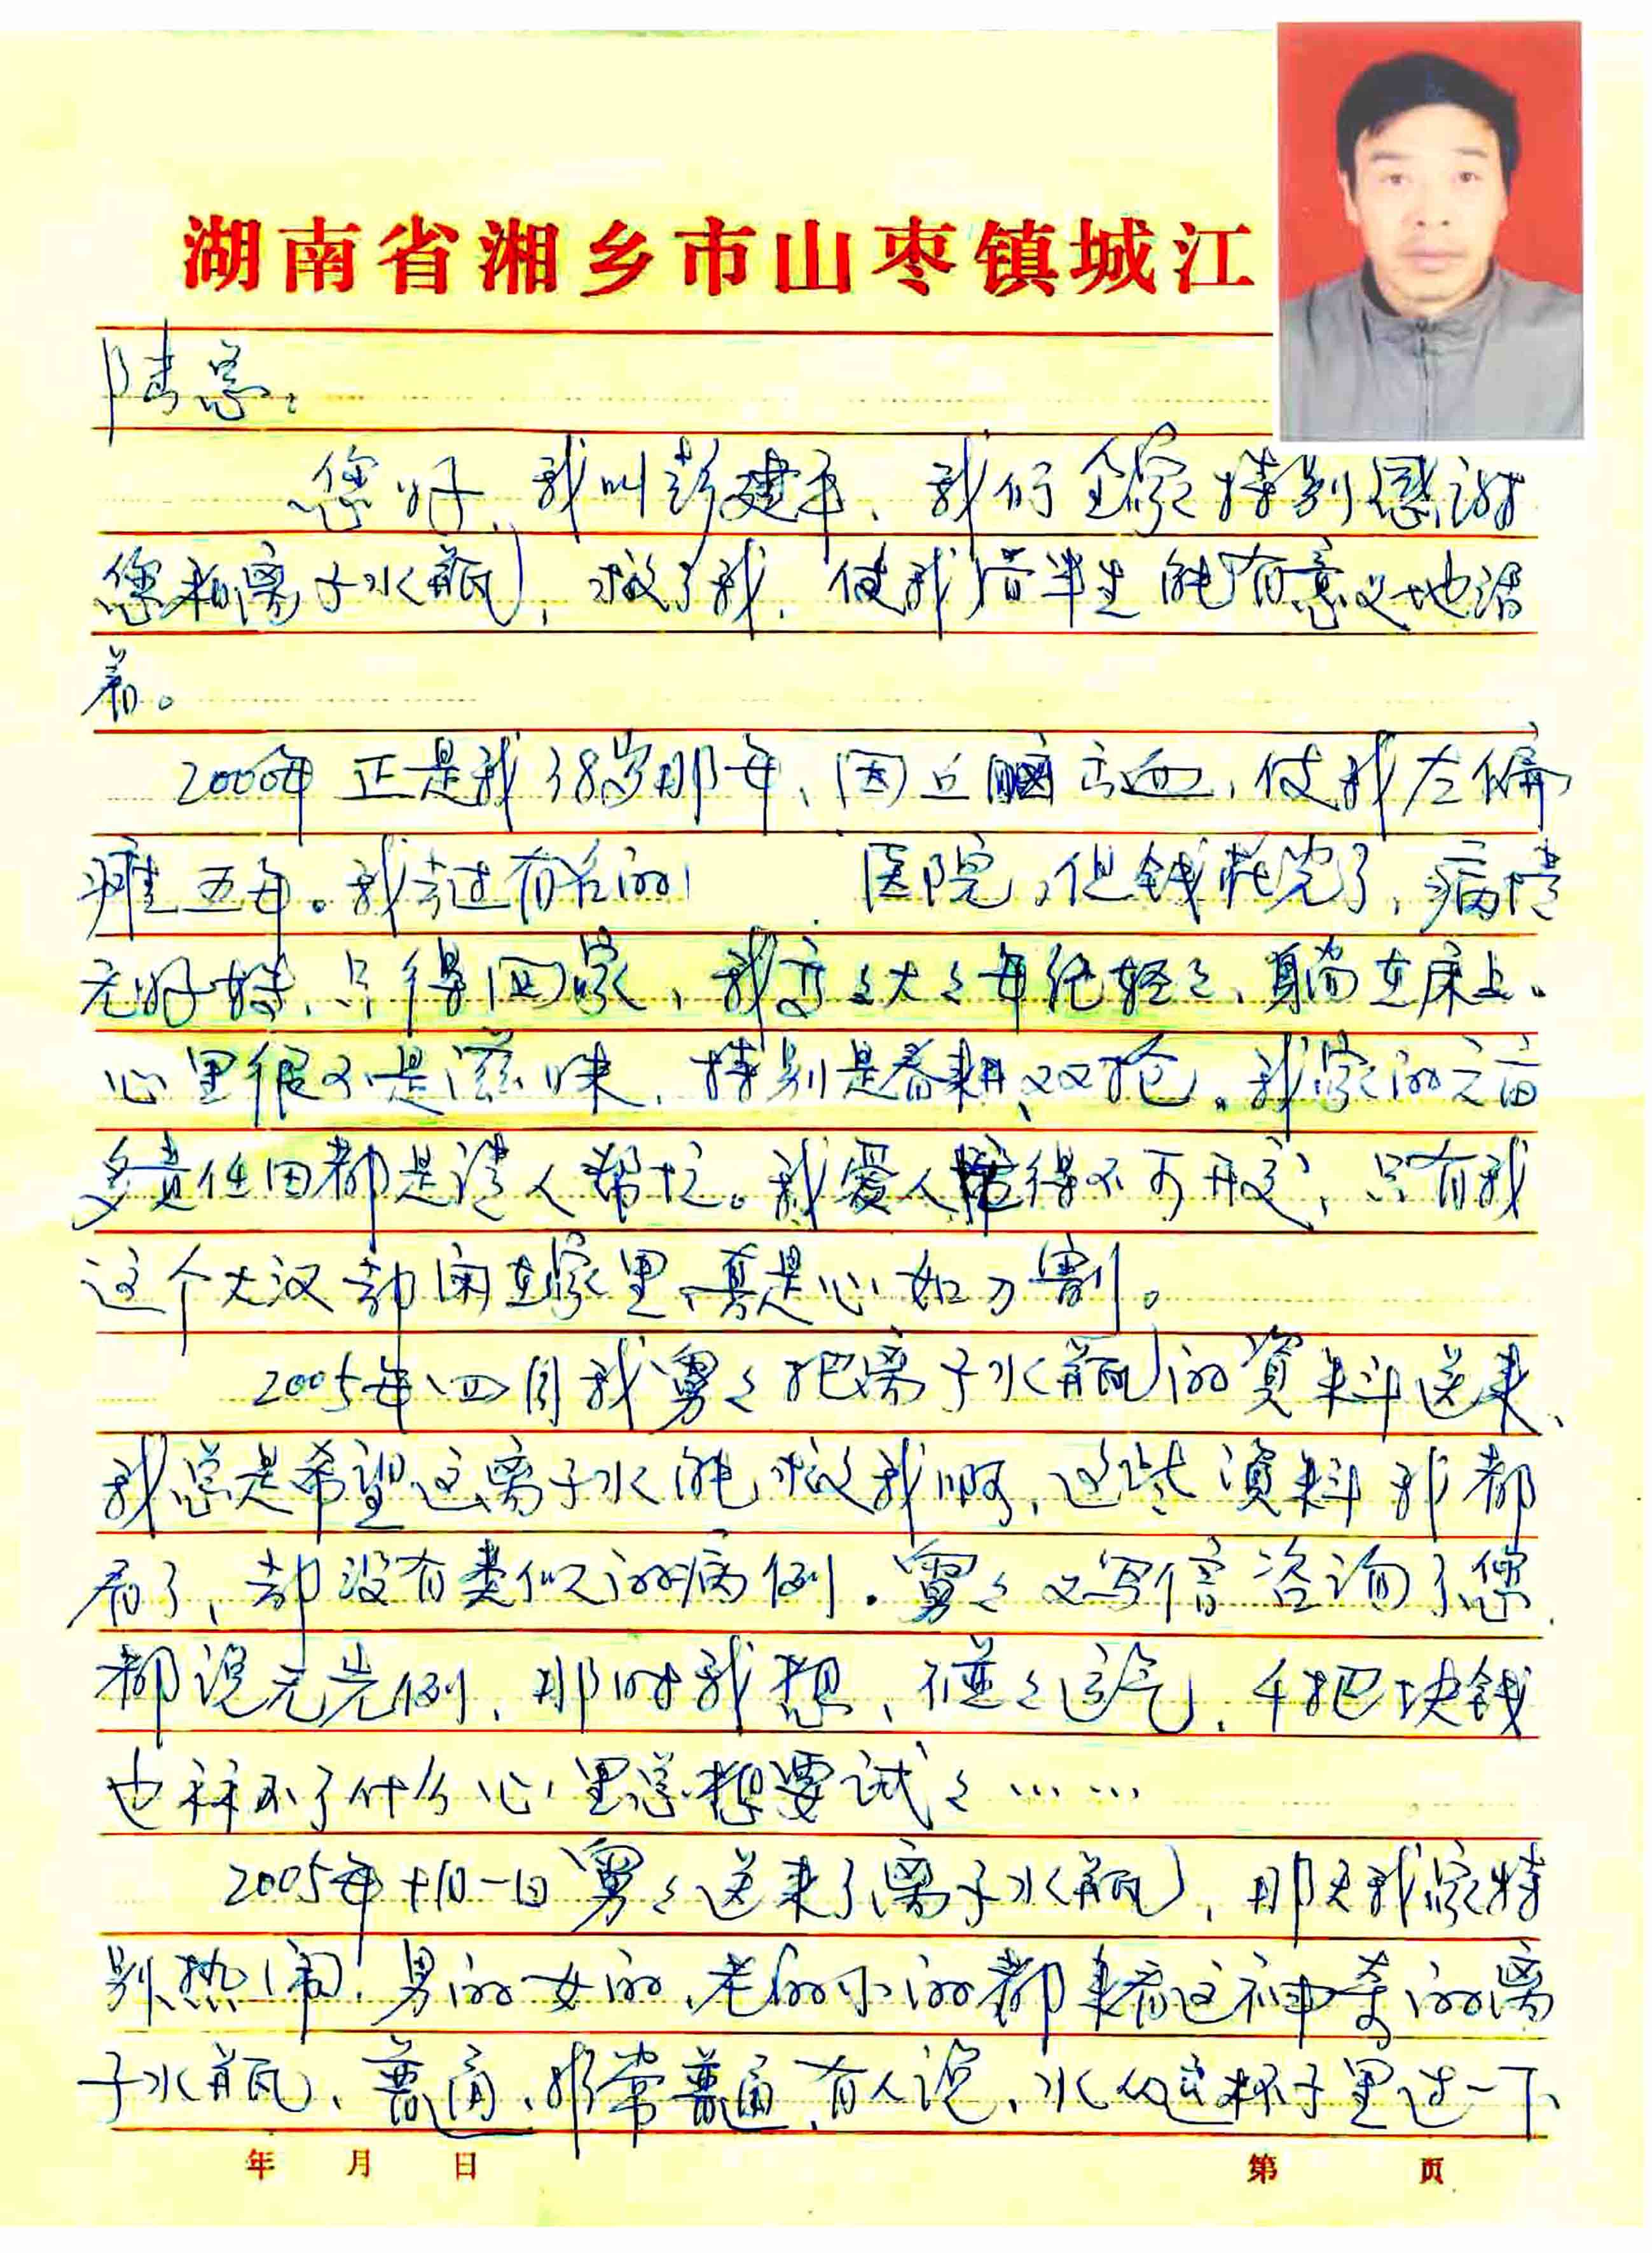 湖南省湘乡市山枣镇城江
陆总:
您好、我叫彭建平、我们全家特别感谢
您和离子水瓶,救了我,使我后半生能有意义地活
着。
2000年正是我38岁那年、因丘脑亡血,使我左偏
瘫五年。我去过有名的 医院,但钱花完了,病情
无好转,只得回家,我高々大々年纪轻々、躺在床上。
心里很不是滋味,特别是春耕、双抢。我家的六亩
多责任田都是请人帮忙。我爱人忙得不可开交,只有我
这个大汉却闲在家里、真是心如刀割。
2005年四月我舅々把离子水瓶的资料送来、
我总是希望这离子水能救我啊,这些资料我都
看了,却没有类似的病例。舅々又写信咨询了您
都说无先例,那时我想、碰々运气,千把块钱
也算不了什么心里总想要试々……
2005年十月一日舅々送来了离子水瓶,那天我家特
别热闹,男的女的、老的小的都来看这神奇的离
子水瓶、普通、非常普通、有人说、水从这杯子里过一下
年 月 日 第 页